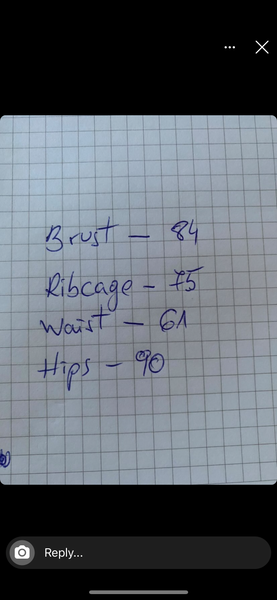 Brust – 84
Ribcage – 75
Waist – 61
Hips – 90
Reply...